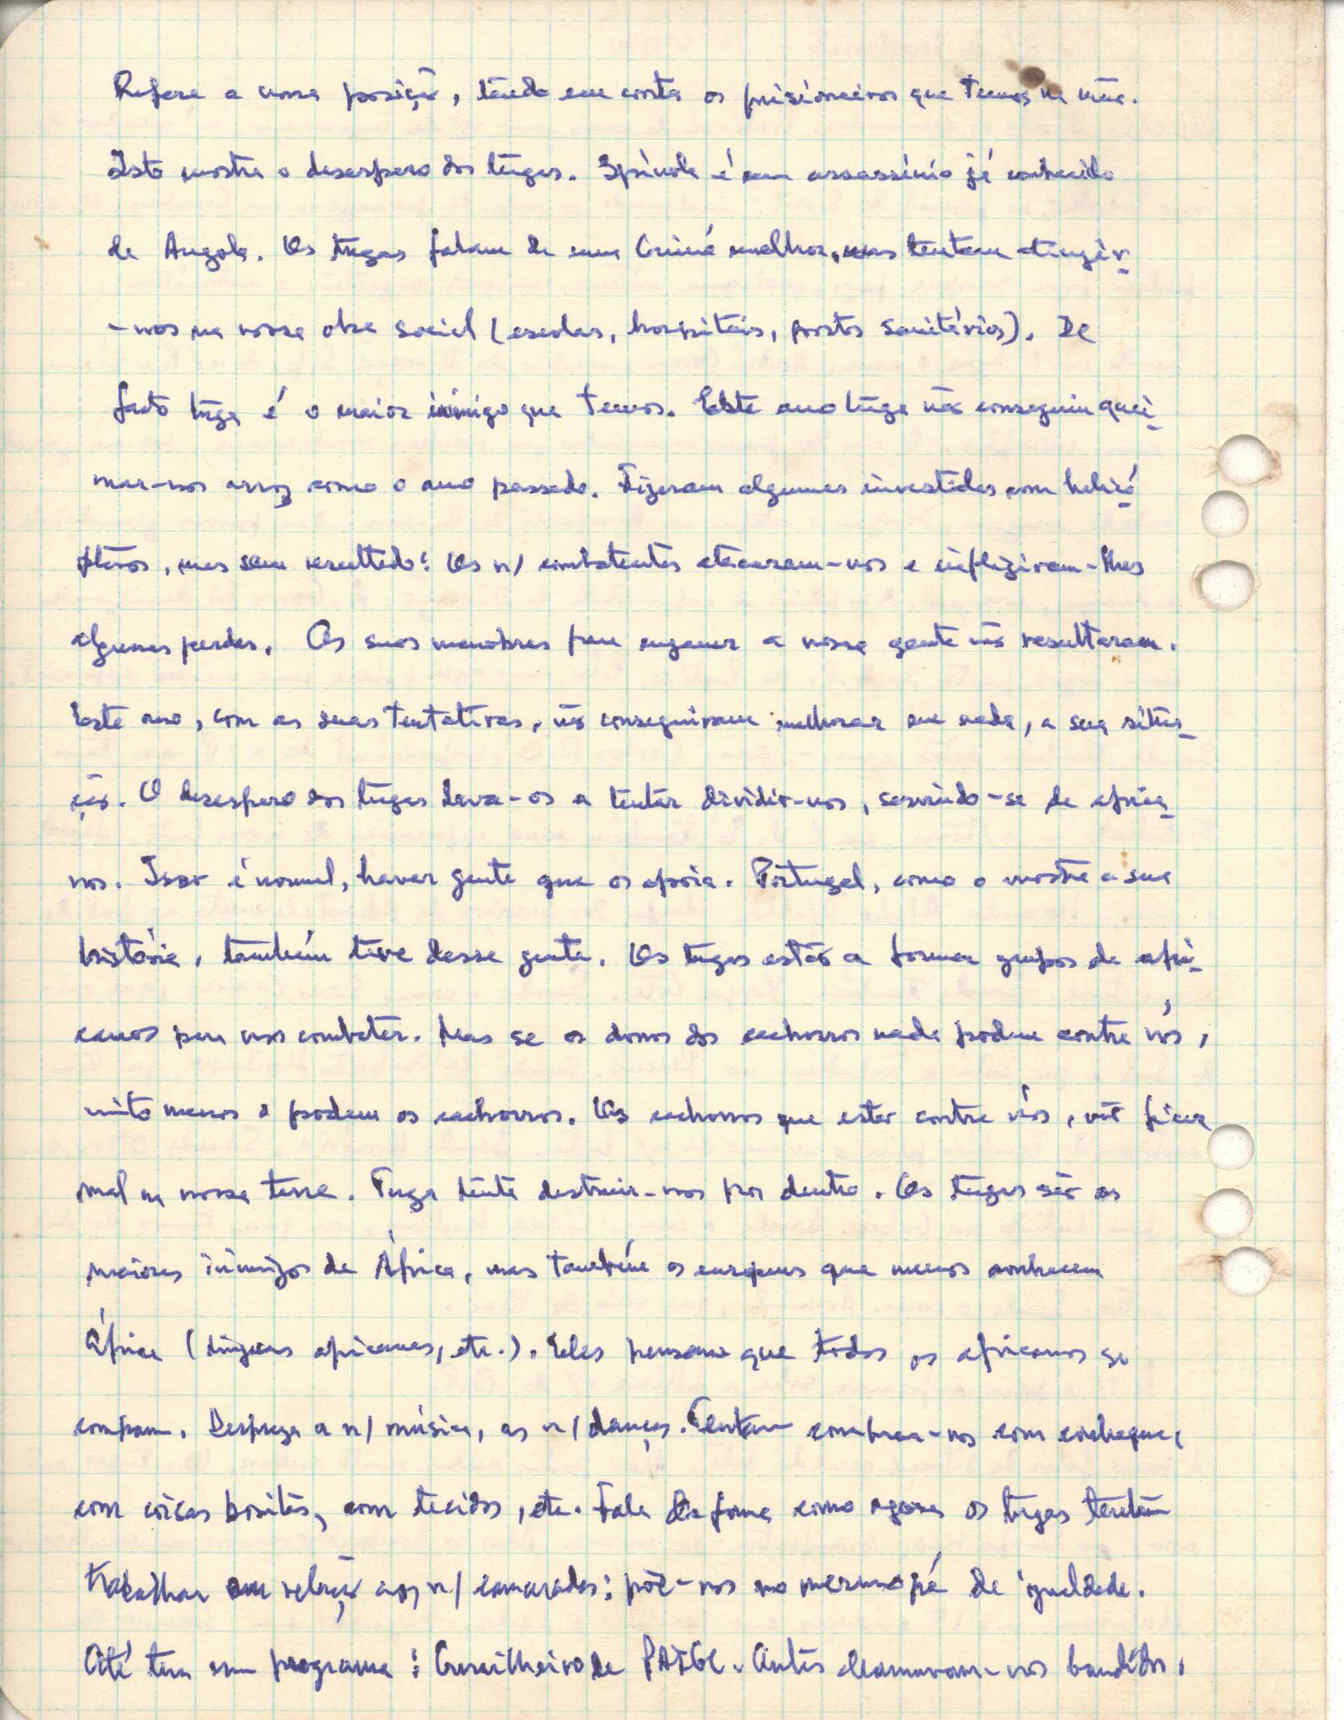 Refere a nossa posição, tendo em conta os prisioneiros que temos na mão.
Isto mostra o desespero dos tugas. Spínola é um assassínio já conhecido
de Angola. Os tugas falam de uma Guiné melhor, mas tentam atingir-
-nos na nossa obra social (escolas, hospitais, postos sanitários). De
facto tuga é o maior inimigo que temos. Este ano tuga não conseguiu quei-
mar-nos arroz como o ano passado. Fizeram algumas investidas com helicó-
pteros, mas sem resultado: Os n/ combatentes atacaram-nos e infligiram-lhes
algumas perdas. As suas manobras para enganar a nossa gente não resultaram.
Este ano, com as suas tentativas, não conseguiram melhorar em nada, a sua situa-
ção. O desespero dos tugas leva-os a tentar dividir-nos, servindo-se de africa-
nos. Isso é normal, haver gente que os apoia. Portugal, como o mostra a sua
história, também teve dessa gente. Os tugas estão a formar grupos de afri-
canos para nos combater. Mas se os donos dos cachorros nada podem contra nós,
muito menos o podem os cachorros. Os cachorros que estão contra nós, vão ficar
mal na nossa terra. Tuga tenta destruir-nos por dentro. Os tugas são os
maiores inimigos de África, mas também os europeus que menos conhecem
África (línguas africanas, etc.). Eles pensam que todos os africanos se
compram. Despreza a n/ música, as n/ danças. Tentam comprar-nos com
com coisas bonitas, com tecidos, etc. Fala da forma como agora os tugas tentam
trabalhar em relação aos n/ camaradas: põe-nos no mesmo pé de igualdade.
Até tem um programa: Guerrilheiro de PAIGC. Antes chamavam-nos bandidos,